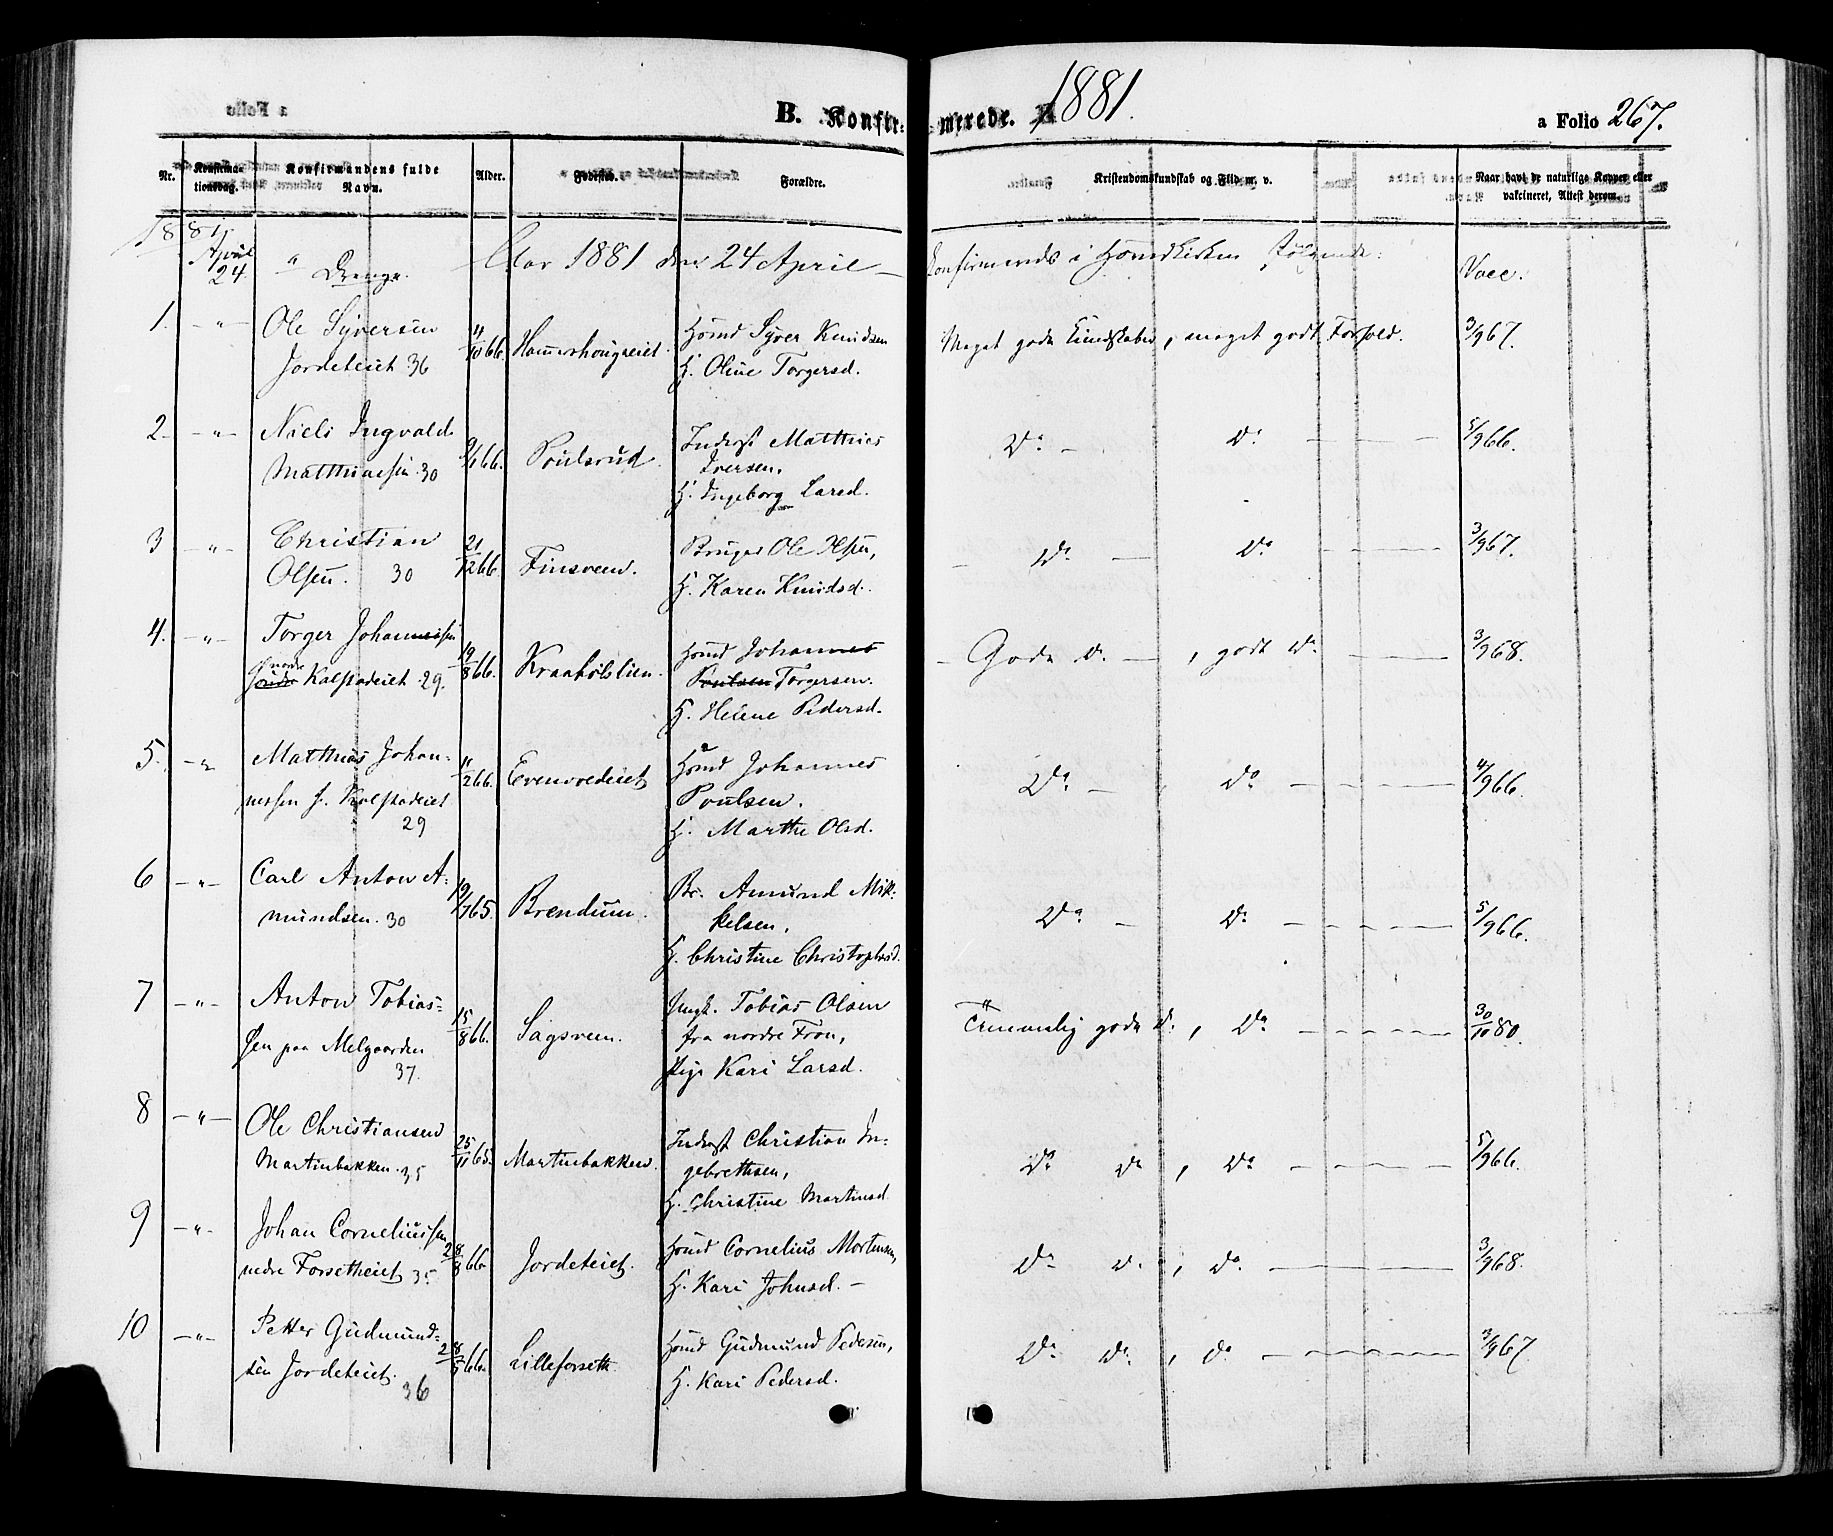 B. Konfir- -merede. 1881.
a Folio 267.
Nr.
Konfirma-
tionsdag.
Konfirmandens fulde
Navn.
Alder.
Fødested.
Forældre.
Kristendomskundskab og Flid m. v.
Naar havt de naturlige Kopper eller
vakcineret, Attest derom.
1881.
April
24.
" Drenge.
Aar 1881 den 24 April — Confirmerede i Hovedkirken følgende:
Vacc.
1. -"- Ole Syversen
Jordeteiet 36
4/10 66. Hammershougseiet.
Hømd Syver Knudsen
H. Oline Torgersd.
Meget gode Kundskaber, meget godt Forhold. 3/9 67.
2. -"- Niels Ingvald
Matthiassen. 30
9/1 66. Poulsrud.
Inderst Matthias
Iversen,
H. Ingeborg Larsd.
Do — Do — — — 5/9 66.
3 -"- Christian
Olsen. 30
21/12 66. Finsveen.
Bruger Ole Olsen,
H. Karen Knudsd.
— Do — Do — — — 3/9 67.
4. -"- Torger Johannessen
nordre Kalstadeiet. 29.
19/8 66. Kraabølslien.
Hømd Johannes
Poulsen Torgersen.
H. Helene Pedersd.
— Gode Do. — , godt Do. — — — 3/9 68.
5. -"- Matthias Johan-
nessen s. Kalstadeiet
29
11/2 66. Evenvoldeiet
Hømd Johannes
Poulsen.
H. Marthe Olsd.
Do. — , Do — — — 4/9 66.
6 -"- Carl Anton A-
mundsen. 30
19/7 65. Brendum.
Br. Amund Mik-
kelsen,
H. Christine Christophersd.
Do — Do. — — — 5/9 66.
7 -"- Anton Tobias-
sen paa Melgaarden
37.
15/8 66. Sagsveen.
Ungk. Tobias Olsen
fra nordre Fron,
Pige Kari Larsd.
Temmelig gode Do, Do — — — 30/10 80.
8 -"- Ole Christiansen
Martinbakken. 35
25/11 65. Martinbakken.
Inderst Christian In-
gebrethsen,
H. Christine Martinsd.
Do Do , Do — — — 5/9 66.
9 -"- Johan Corneliussen
nedre Forsetheiet 35
28/8 66. Jordeteiet.
Hømd Cornelius Mortensen,
H. Kari Johnsd. —
Do Do , Do. — — — 3/9 68.
10 -"- Petter Gudmund-
sen Jordeteiet.
36
28/5 66. Lilleforseth
Hømd Gudmund Pedersen,
H. Kari Pedersd.
Do. Do. , Do. — — — 3/9 67.